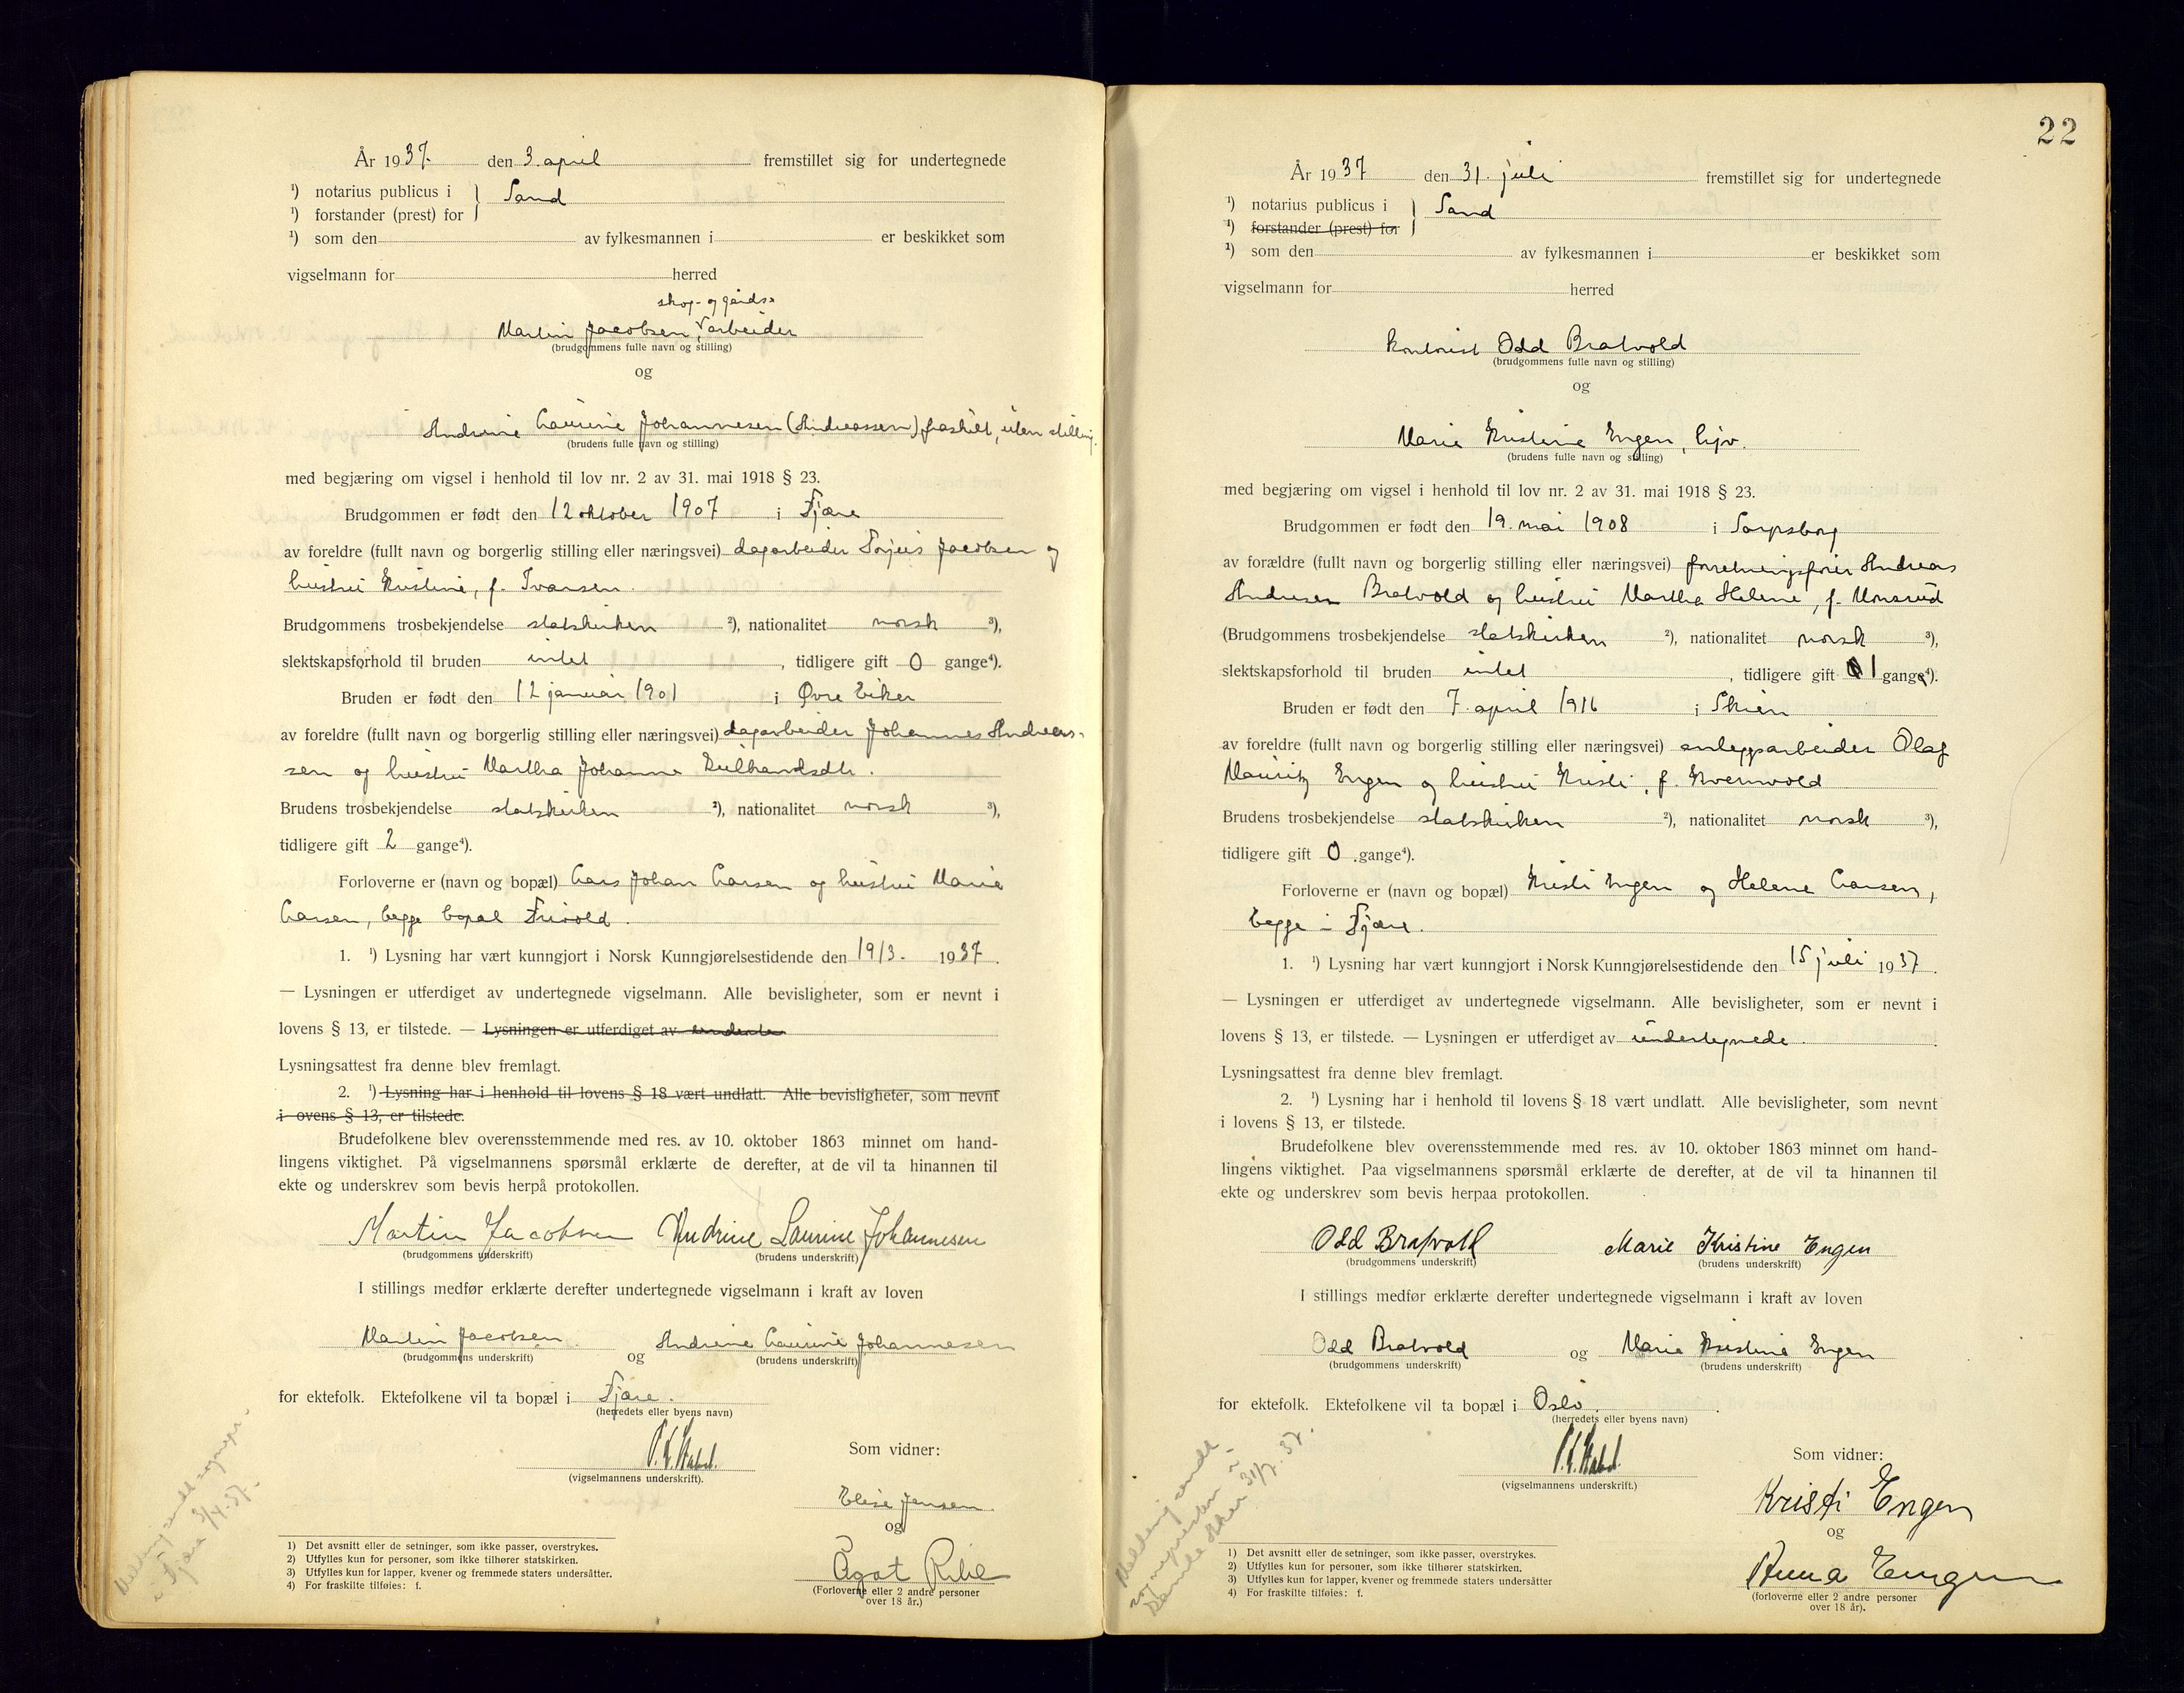 År 1937. den 3. april fremstillet sig for undertegnede
¹) notarius publicus i } Sand
¹) forstander (prest) for
¹) som den av fylkesmannen i er beskikket som
vigselmann for herred
skog- og gårds-
Martin Jacobsen, arbeider
(brudgommens fulle navn og stilling)
og
Andrine Laurine Johannesen (Andreassen) fraskilt, uten stilling.
(brudens fulle navn og stilling)
med begjæring om vigsel i henhold til lov nr. 2 av 31. mai 1918 § 23.
Brudgommen er født den 12 oktober 1907 i Fjære
av foreldre (fullt navn og borgerlig stilling eller næringsvei) dagarbeider Torjus Jacobsen og
hustru Kristine, f. Ivarsen.
Brudgommens trosbekjendelse statskirken ²), nationalitet norsk ³),
slektskapsforhold til bruden intet , tidligere gift 0 gange⁴).
Bruden er født den 12 januar 1901 i Øvre Eiker
av foreldre (fullt navn og borgerlig stilling eller næringsvei) dagarbeider Johannes Andreas-
sen og hustru Martha Johanne
Brudens trosbekjendelse statskirken ²), nationalitet norsk ³),
tidligere gift 2 gange⁴).
Forloverne er (navn og bopæl) Lars Johan Larsen og hustru Marie
Larsen, begge bopæl Frivold.
1. ¹) Lysning har vært kunngjort i Norsk Kunngjørelsestidende den 19/3. 1937.
— Lysningen er utferdiget av undertegnede vigselmann. Alle bevisligheter, som er nevnt i
lovens § 13, er tilstede. — Lysningen er utferdiget av
Lysningsattest fra denne blev fremlagt.
2. ¹) Lysning har i henhold til lovens § 18 vært undlatt. Alle bevisligheter, som nevnt
i ovens § 13, er tilstede.
Brudefolkene blev overensstemmende med res. av 10. oktober 1863 minnet om hand-
lingens viktighet. På vigselmannens spørsmål erklærte de derefter, at de vil ta hinannen til
ekte og underskrev som bevis herpå protokollen.
Martin Jacobsen Andrine Laurine Johannesen
(brudgommens underskrift) (brudens underskrift)
I stillings medfør erklærte derefter undertegnede vigselmann i kraft av loven
Martin Jacobsen og Andrine Laurine Johannesen
(brudgommens underskrift) (brudens underskrift)
for ektefolk. Ektefolkene vil ta bopæl i Fjære.
(herredets eller byens navn)
(vigselmannens underskrift).
Som vidner:
Elise Jensen
og
Agot
(Forloverne eller 2 andre personer
over 18 år.)
Melding sendt sognepr.
i Fjære 3/4-37.
1) Det avsnitt eller de setninger, som ikke passer, overstrykes.
2) Utfylles kun for personer, som ikke tilhører statskirken.
3) Utfylles kun for lapper, kvener og fremmede staters undersåtter.
4) For fraskilte tilføies: f.
22
År 1937 den 31. juli fremstillet sig for undertegnede
¹) notarius publicus i } Sand
¹) forstander (prest) for
¹) som den av fylkesmannen i er beskikket som
vigselmann for herred
kontorist Odd Bratvold
(brudgommens fulle navn og stilling)
og
Marie Kristine Engen, hjv.
(brudens fulle navn og stilling)
med begjæring om vigsel i henhold til lov nr. 2 av 31. mai 1918 § 23.
Brudgommen er født den 19. mai 1908 i Sarpsborg
av forældre (fullt navn og borgerlig stilling eller næringsvei) forretningsfører Andreas
Andresen Bratvold og hustru Martha Helene, f. Monsrud
(Brudgommens trosbekjendelse statskirken ²), nationalitet norsk ³),
slektskapsforhold til bruden intet , tidligere gift 1 gange⁴).
Bruden er født den 7. april 1916 i Skien
av foreldre (fullt navn og borgerlig stilling eller næringsvei) anleggsarbeider Olaf
Mauritz Engen og hustru Kristi, f. Kvernvold
Brudens trosbekjendelse statskirken ²), nationalitet norsk ³),
tidligere gift 0 gange⁴).
Forloverne er (navn og bopæl) Kristi Engen og Helene Larsen,
begge i Fjære.
1. ¹) Lysning har vært kunngjort i Norsk Kunngjørelsestidende den 15 juli 1937.
— Lysningen er utferdiget av undertegnede vigselmann. Alle bevisligheter, som er nevnt i
lovens § 13, er tilstede. — Lysningen er utferdiget av undertegnede.
Lysningsattest fra denne blev fremlagt.
2. ¹) Lysning har i henhold til lovens § 18 vært undlatt. Alle bevisligheter, som nevnt
i lovens § 13, er tilstede.
Brudefolkene blev overensstemmende med res. av 10. oktober 1863 minnet om hand-
lingens viktighet. Paa vigselmannens spørsmål erklærte de derefter, at de vil ta hinannen til
ekte og underskrev som bevis herpaa protokollen.
Odd Bratvold Marie Kristine Engen
(brudgommens underskrift) (brudens underskrift)
I stillings medfør erklærte derefter undertegnede vigselmann i kraft av loven
Odd Bratvold og Marie Kristine Engen
(brudgommens underskrift) (brudens underskrift)
for ektefolk. Ektefolkene vil ta bopæl i Oslo.
(herredets eller byens navn)
(vigselmannens underskrift.)
Som vidner:
Kristi Engen
og
Anna Engen
(forloverne eller 2 andre personer
over 18 år).
Melding sendt
sognepresten i
Gamle Aker 31/7. 37.
1) Det avsnitt eller de setninger, som ikke passer, overstrykes.
2) Utfylles kun for personer, som ikke tilhører statskirken.
3) Utfylles kun for lapper, kvener og fremmede staters undersåtter
4) For fraskilte tilføies: f.